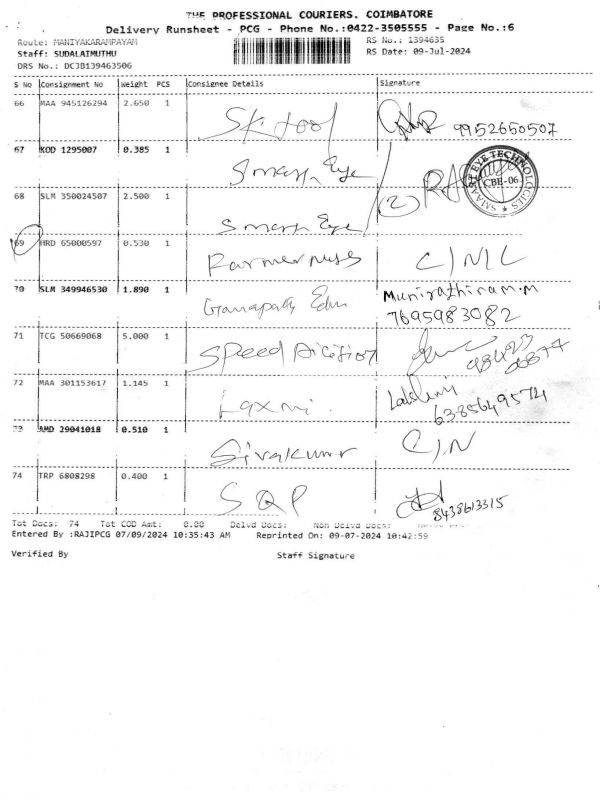 THE PROFESSIONAL COURIERS. COIMBATORE
Delivery Runsheet - PCG - Phone No.:0422-3505555 - Page No.:6
Route: MANIYAKARAMPAYAM RS No.: 1394635
Staff: SUDALAIMUTHU RS Date: 09-Jul-2024
DRS No.: DCJB139463506
S No Consignment No Weight PCS Consignee Details Signature
66 MAA 945126294 2.650 1 SK tool 9952650507
67 KOD 1295007 0.385 1 Smart Eye
SMAART EYE TECHNOLOGIES
CBE-06
68 SLM 350024507 2.500 1 Smart Eye 2
69 HRD 65000597 0.530 1 C/N/L
70 SLM 349946530 1.890 1 Ganapathy Edu Munirathinam.M
7695983082
71 TCG 50669068 5.000 1 Speed
72 MAA 301153617 1.145 1 Laxmi. 6385649574
73 AMD 29041018 0.510 1 Sivakumar C/N
74 TRP 6808298 0.400 1 SQP 8438613315
Tot Docs: 74 Tot COD Amt: 0.00 Delvd Docs: Non Delvd Docs:
Entered By :RAJIPCG 07/09/2024 10:35:43 AM Reprinted On: 09-07-2024 10:42:59
Verified By Staff Signature